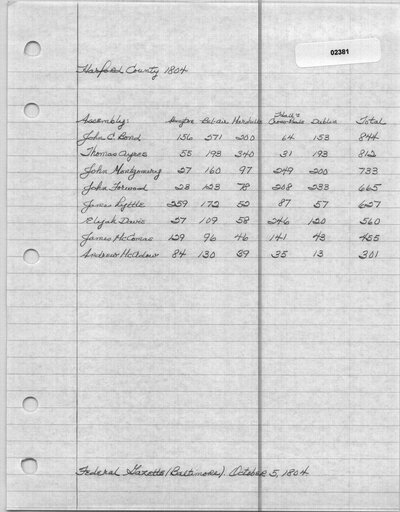 02381
Harford County 1804
Hall's
Assembly: Belair Cross-Roads Dublin Total
John C Bond 156 271 200 64 153 844
Thomas Ayres 55 193 340 31 193 812
John Montgomery 27 160 97 249 200 733
John Forwood 28 123 73 208 233 665
James Lyttle 259 172 52 87 57 627
Elijah Davis 27 109 58 246 120 560
James McComas 129 96 46 141 43 455
Andrew McAdow 84 130 39 35 13 301
Federal Gazette (Baltimore). October 5, 1804